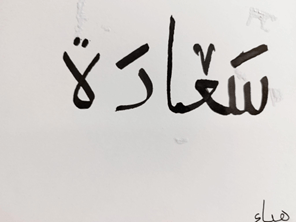 سَعَادَة
هباء